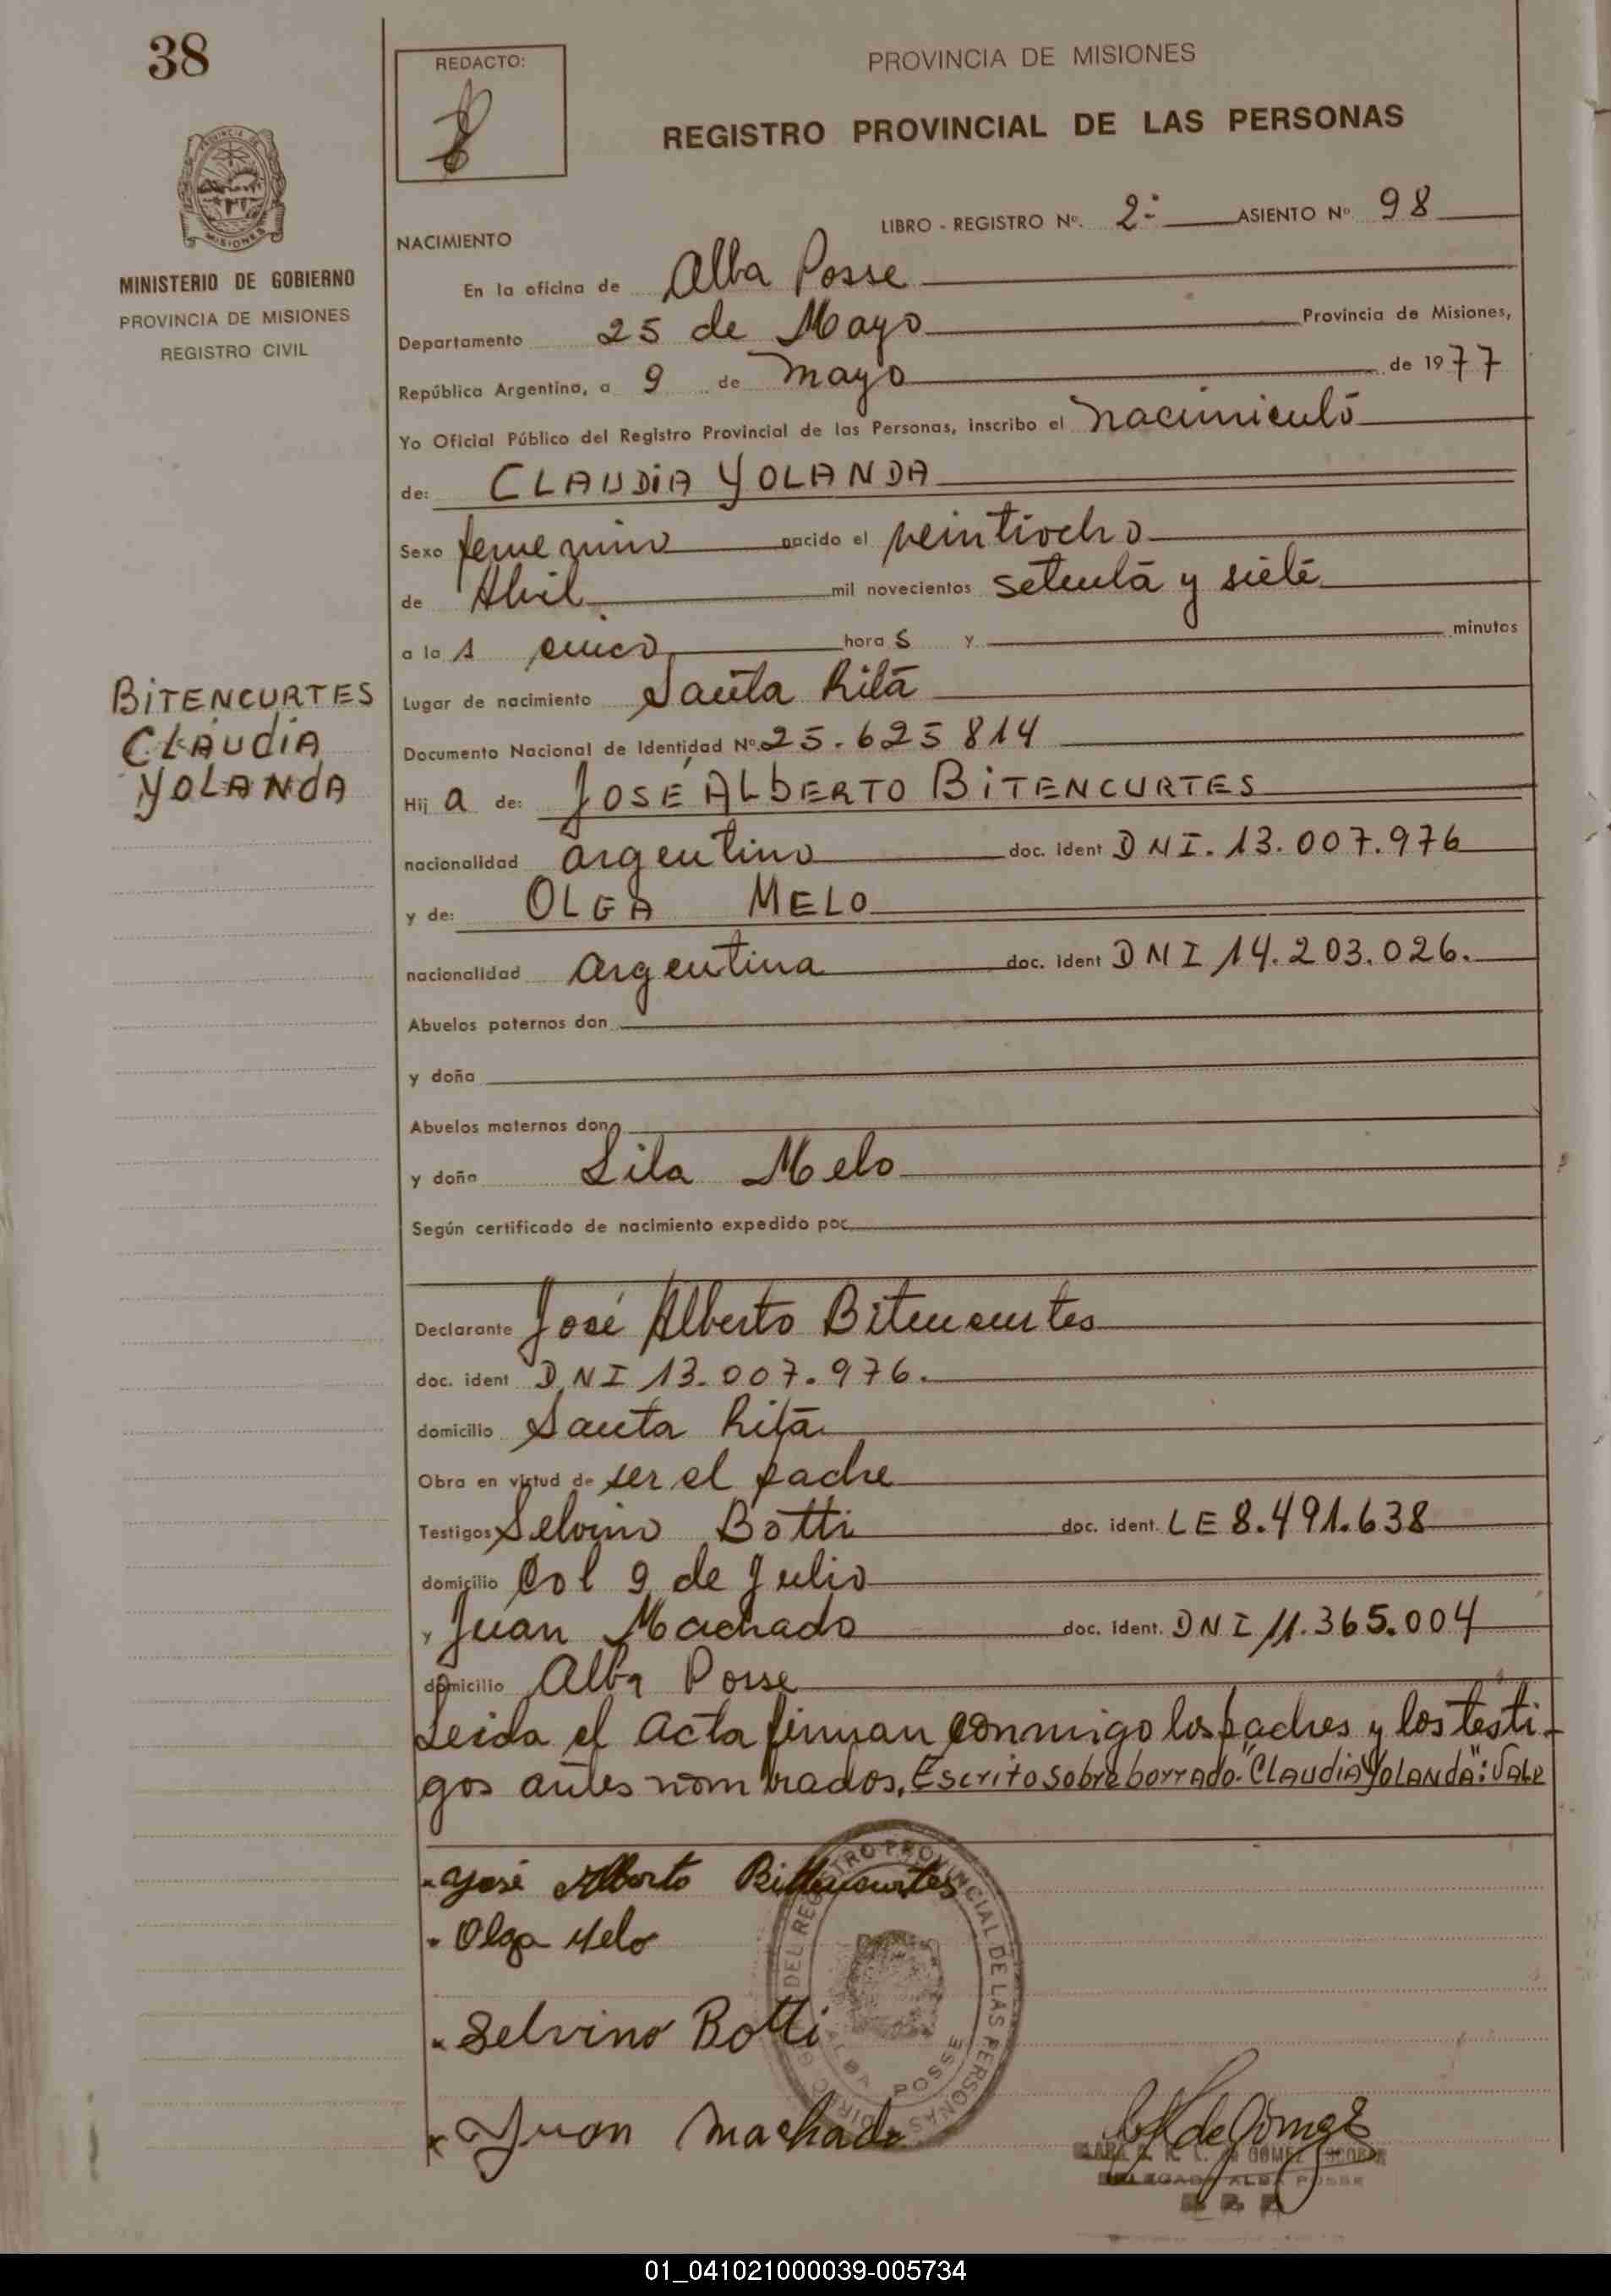 38
REDACTO:
PROVINCIA DE MISIONES
REGISTRO PROVINCIAL DE LAS PERSONAS
LIBRO - REGISTRO Nº. 2º ASIENTO Nº 98
MISIONES
MINISTERIO DE GOBIERNO
PROVINCIA DE MISIONES
REGISTRO CIVIL
NACIMIENTO
En la oficina de Alba Posse
Departamento 25 de Mayo Provincia de Misiones,
República Argentina, a 9 de mayo de 1977
Yo Oficial Público del Registro Provincial de las Personas, inscribo el nacimiento
de: CLAUDIA YOLANDA
Sexo femenino nacido el veintiocho
de Abril mil novecientos setenta y siete
a las cinco horas y minutos
Lugar de nacimiento Santa Rita
Documento Nacional de Identidad Nº 25.625814
BITENCURTES
CLAUDIA
YOLANDA
Hija de: JOSÉ ALBERTO BITENCURTES
nacionalidad argentino doc. ident DNI. 13.007.976
y de: OLGA MELO
nacionalidad argentina doc. ident DNI 14.203.026.
Abuelos paternos don
y doña
Abuelos maternos don
y doña Lila Melo
Según certificado de nacimiento expedido por
Declarante José Alberto Bitencurtes
doc. ident DNI 13.007.976.
domicilio Santa Rita
Obra en virtud de ser el padre
Testigos Selvino Botti doc. ident. LE 8.491.638
domicilio Col 9 de Julio
y Juan Machado doc. ident. DNI 11.365.004
domicilio Alba Posse
Leida el Acta firman conmigo los padres y los testi-
gos antes nombrados. Escrito sobre borrado. "CLAUDIA YOLANDA": VALE
José Alberto Bittencurtes
Olga Melo
Selvino Botti
Juan Machado
DEL REGISTRO PROVINCIAL DE LAS PERSONAS
ALBA POSSE
de Gómez
01_041021000039-005734